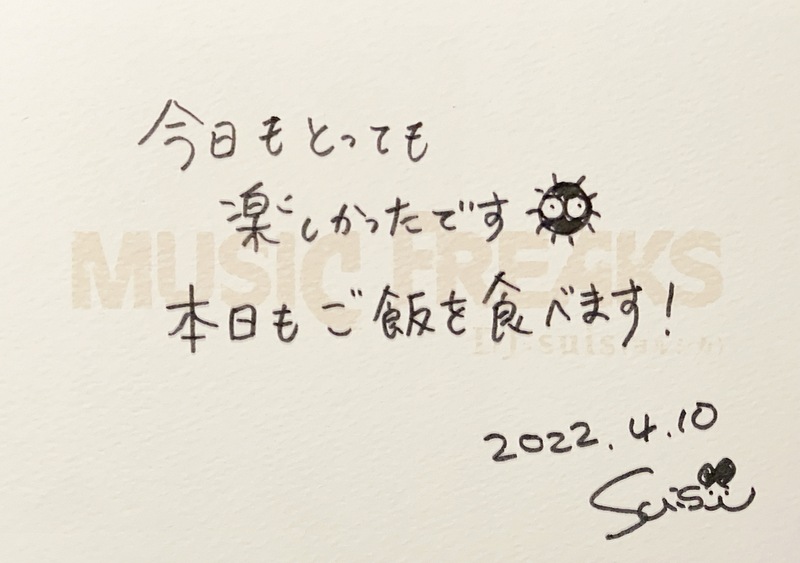 今日もとっても
楽しかったです
MUSIC FREAKS
本日もご飯を食べます！
DJ:suis(ヨルシカ)
2022.4.10
Suis